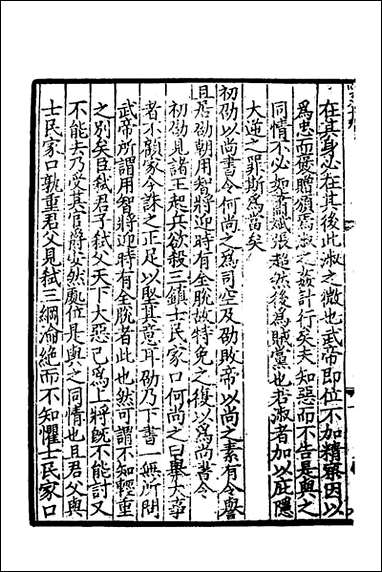 在其身必在其後此淑之微也武帝即位不加精察因以
爲忠而褒贈頒焉淑之姦計行矣夫知惡而不告是與之
同情不必如蕭斌張超然後爲賊黨也若淑者加以庇隱
大逆之罪斯爲當矣
初劭以尚書令何尚之爲司空及劭敗帝以尚之素有令譽
且居劭朝用智將迎時有全脫故特免之復以爲尚書令
初劭見諸王起兵欲殺三鎮士民家口何尚之曰舉大事
者不顧家今誅之正足以堅其意耳劭乃下書一無所問
武帝所謂用智將迎時有全脫者此也然可謂不知輕重
之別矣臣弑君子弑父天下大惡已爲上將旣不能討又
不能去乃受其官爵安然處位是與之同情也且君父與
士民家口孰重君父見弑三綱淪絕而不知懼士民家口